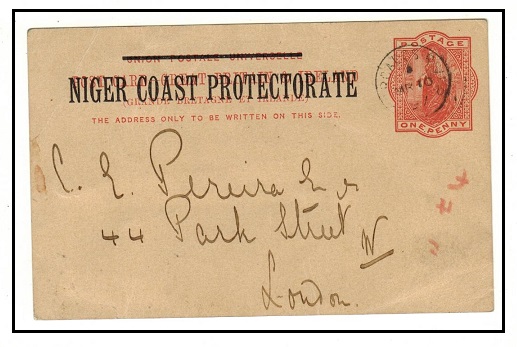 UNION POSTALE UNIVERSELLE
NIGER COAST PROTECTORATE
(GRANDE BRETAGNE ET IRLANDE)
THE ADDRESS ONLY TO BE WRITTEN ON THIS SIDE.
POSTAGE
ONE PENNY
C. E. Pereira Esqr
44 Park Street
W
London.